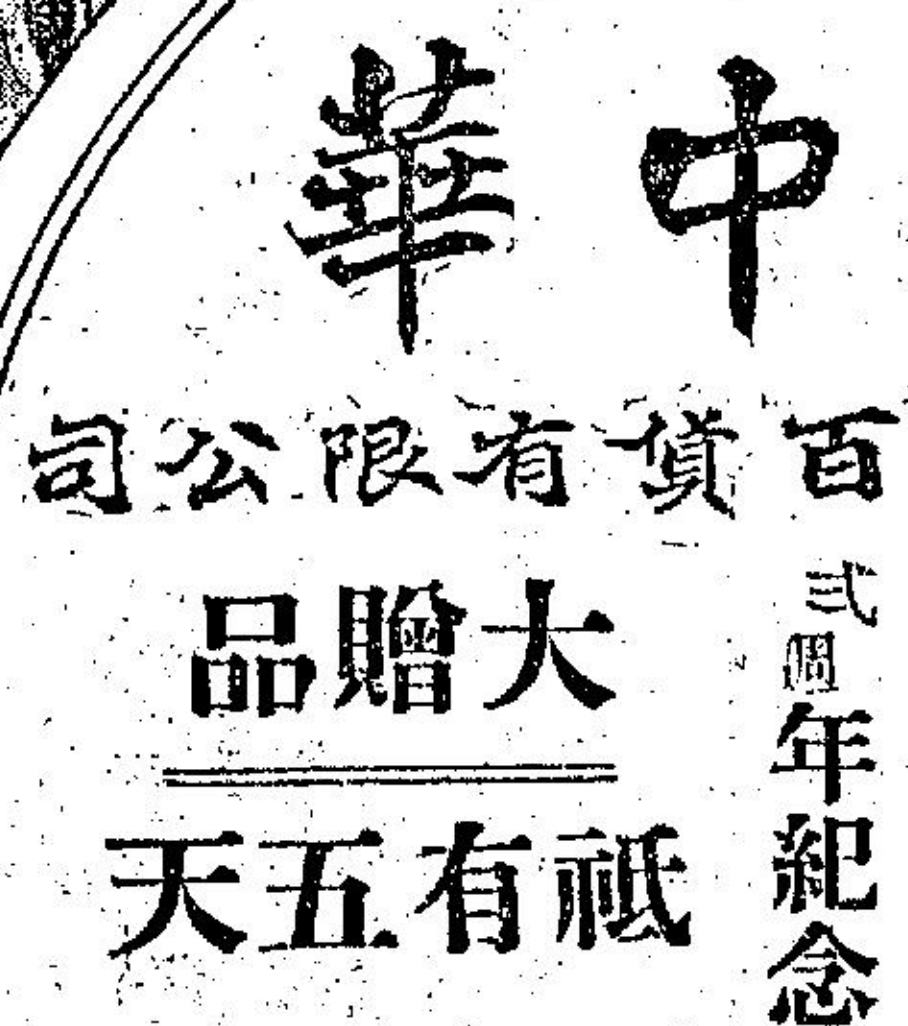 中華
百貨有限公司
弍週年紀念
大贈品
祇有五天